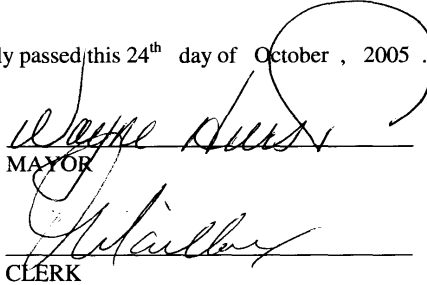 ly passed this 24th day of October , 2005 .
Wayne Hurst
MAYOR
CLERK